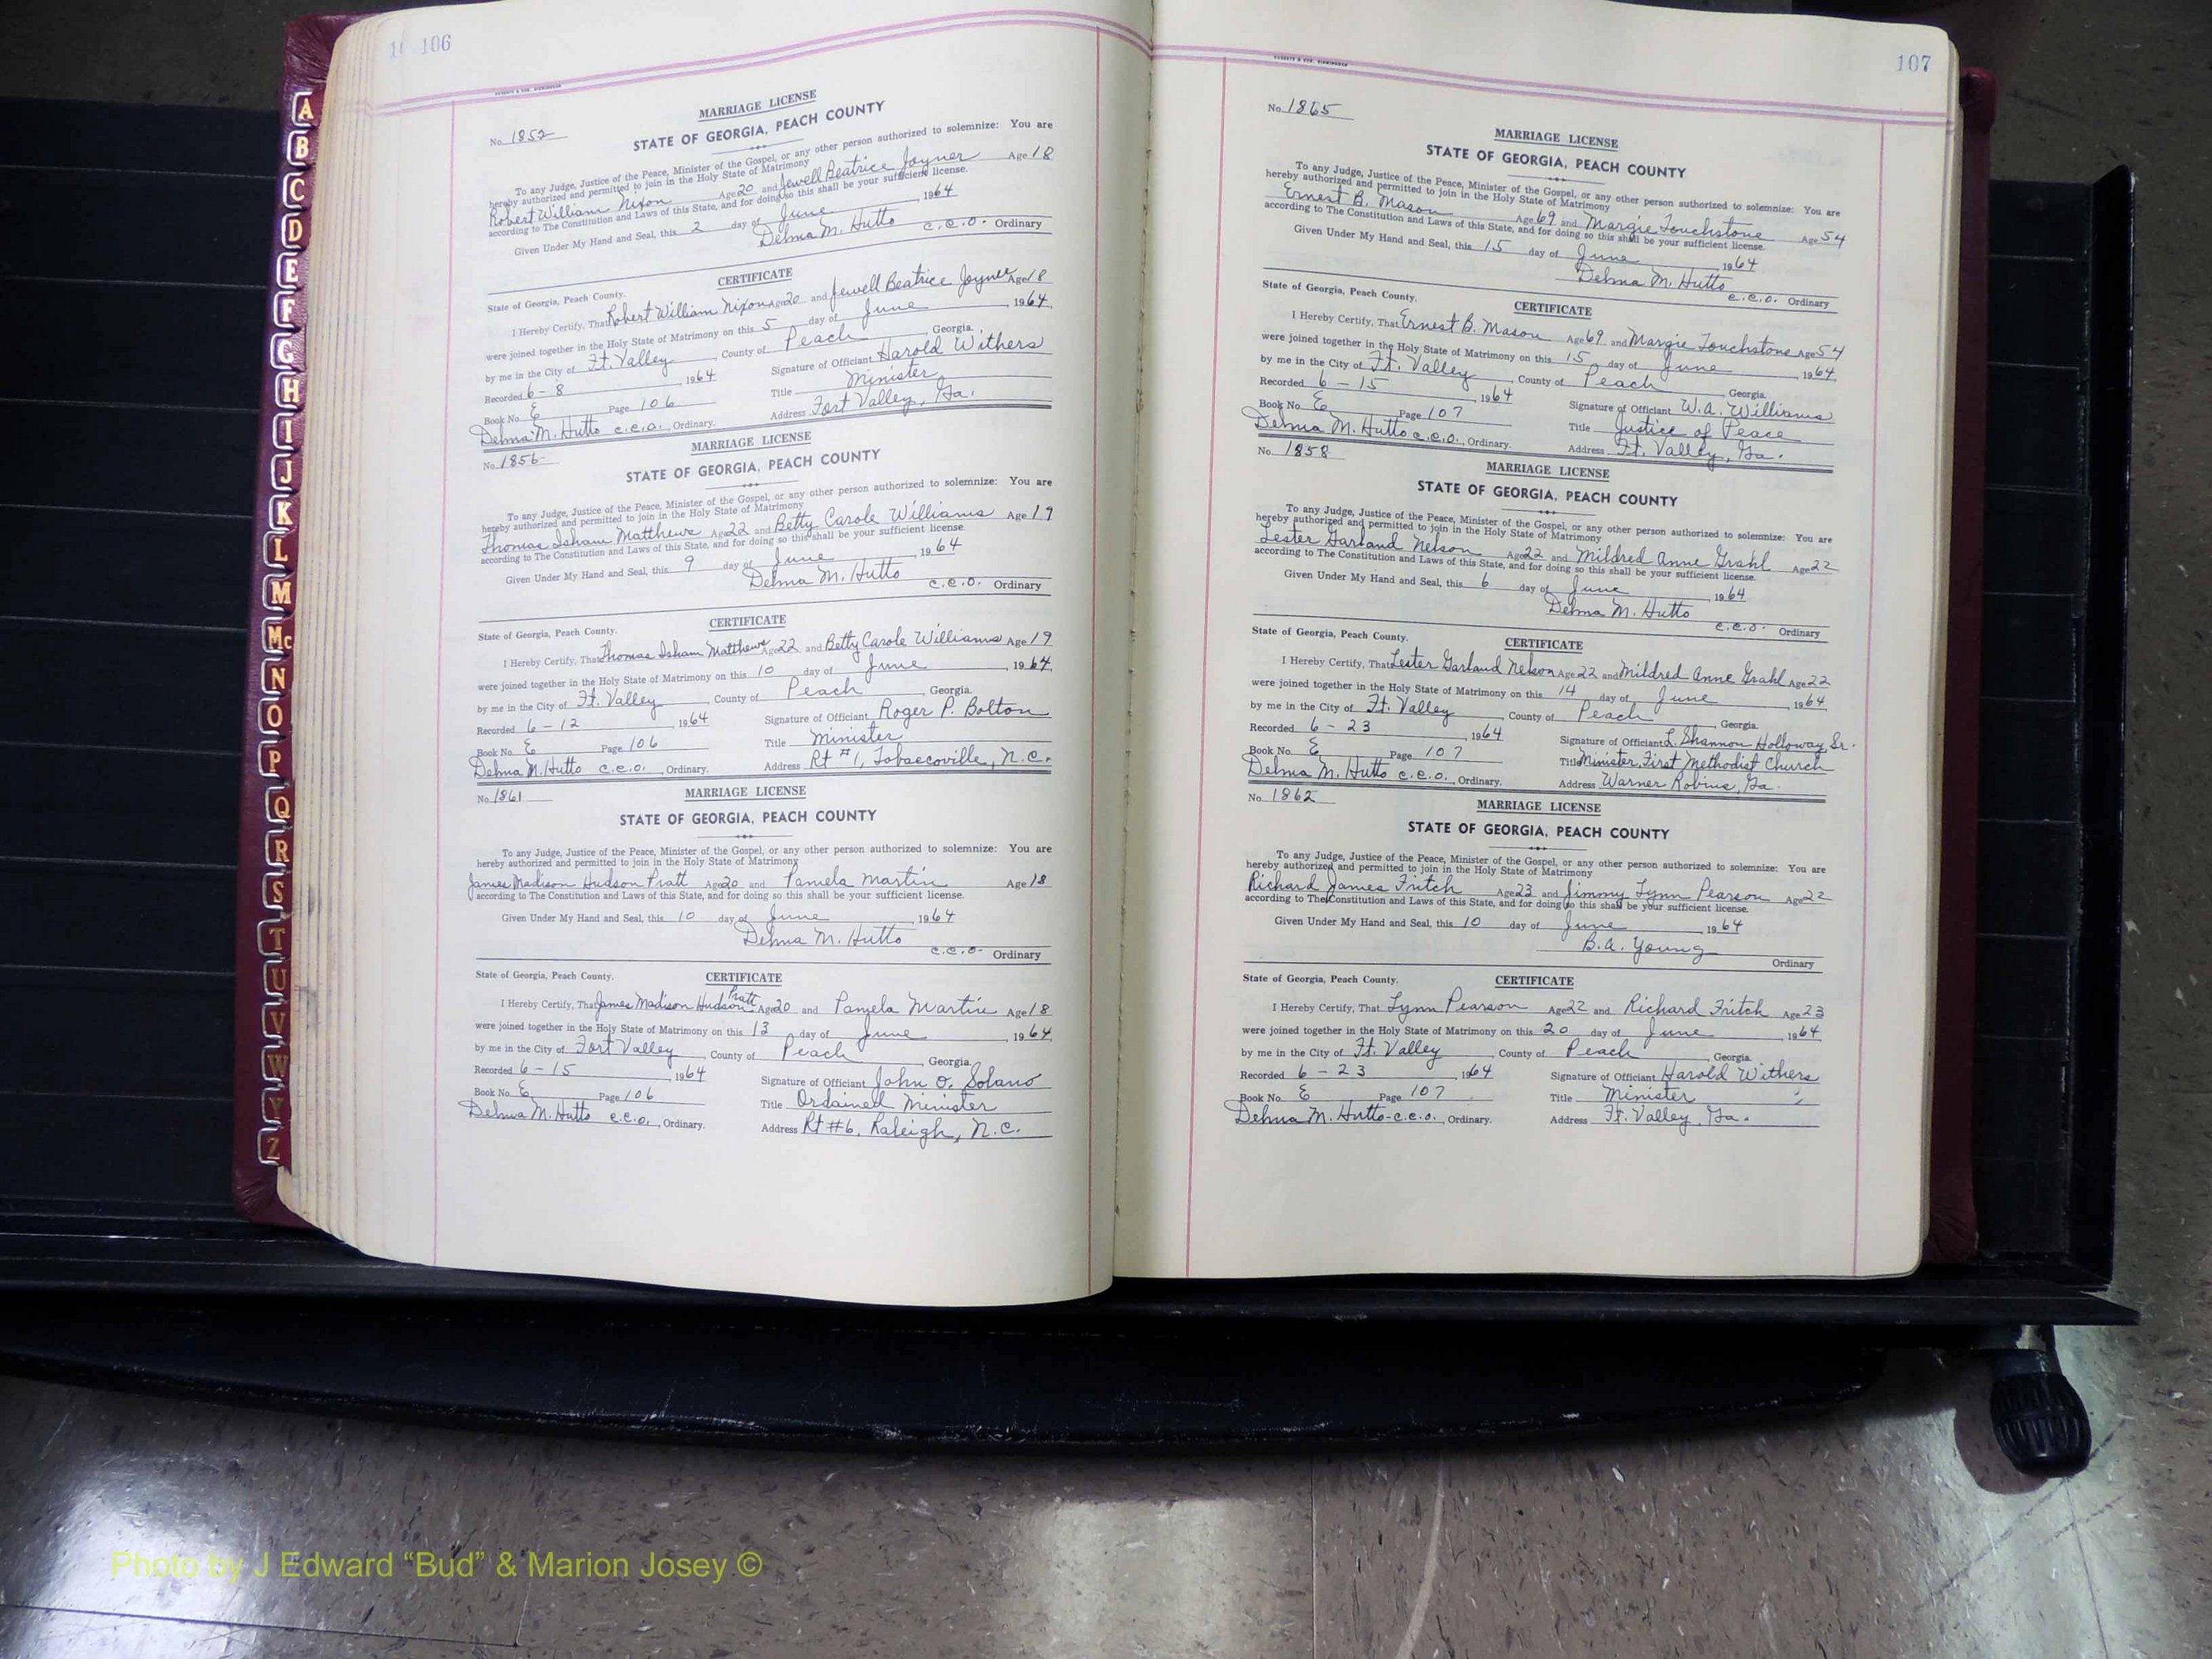 106
ROBERTS & SON, BIRMINGHAM
MARRIAGE LICENSE
No. 1852
STATE OF GEORGIA, PEACH COUNTY
To any Judge, Justice of the Peace, Minister of the Gospel, or any other person authorized to solemnize: You are
hereby authorized and permitted to join in the Holy State of Matrimony
Robert William Nixon Age 20 and Jewell Beatrice Joyner Age 18
according to The Constitution and Laws of this State, and for doing so this shall be your sufficient license.
Given Under My Hand and Seal, this 2 day of June, 1964
Delma M. Hutto c.c.o. Ordinary
CERTIFICATE
State of Georgia, Peach County.
I Hereby Certify, That Robert William Nixon Age 20 and Jewell Beatrice Joyner Age 18
were joined together in the Holy State of Matrimony on this 5 day of June, 1964.
by me in the City of Ft. Valley, County of Peach, Georgia.
Recorded 6-8, 1964 Signature of Officiant Harold Withers
Book No. E Page 106 Title Minister
Delma M. Hutto c.c.o., Ordinary. Address Fort Valley, Ga.
MARRIAGE LICENSE
No. 1856
STATE OF GEORGIA, PEACH COUNTY
To any Judge, Justice of the Peace, Minister of the Gospel, or any other person authorized to solemnize: You are
hereby authorized and permitted to join in the Holy State of Matrimony
Thomas Isham Matthews Age 22 and Betty Carole Williams Age 19
according to The Constitution and Laws of this State, and for doing so this shall be your sufficient license.
Given Under My Hand and Seal, this 9 day of June, 1964
Delma M. Hutto c.c.o. Ordinary
CERTIFICATE
State of Georgia, Peach County.
I Hereby Certify, That Thomas Isham Matthews Age 22 and Betty Carole Williams Age 19
were joined together in the Holy State of Matrimony on this 10 day of June, 1964.
by me in the City of Ft. Valley, County of Peach, Georgia.
Recorded 6-12, 1964 Signature of Officiant Roger P. Bolton
Book No. E Page 106 Title Minister
Delma M. Hutto c.c.o., Ordinary. Address Rt #1, Tobaccoville, N.C.
No. 1861 MARRIAGE LICENSE
STATE OF GEORGIA, PEACH COUNTY
To any Judge, Justice of the Peace, Minister of the Gospel, or any other person authorized to solemnize: You are
hereby authorized and permitted to join in the Holy State of Matrimony
James Madison Hudson Pratt Age 20 and Pamela Martin Age 18
according to The Constitution and Laws of this State, and for doing so this shall be your sufficient license.
Given Under My Hand and Seal, this 10 day of June, 1964
Delma M. Hutto c.c.o. Ordinary
State of Georgia, Peach County. CERTIFICATE
I Hereby Certify, That James Madison Hudson Pratt Age 20 and Pamela Martin Age 18
were joined together in the Holy State of Matrimony on this 13 day of June, 1964.
by me in the City of Fort Valley, County of Peach, Georgia.
Recorded 6-15, 1964 Signature of Officiant John O. Solano
Book No. E Page 106 Title Ordained Minister
Delma M. Hutto c.c.o., Ordinary. Address Rt #6, Raleigh, N.C.
107
ROBERTS & SON, BIRMINGHAM
No. 1865
MARRIAGE LICENSE
STATE OF GEORGIA, PEACH COUNTY
To any Judge, Justice of the Peace, Minister of the Gospel, or any other person authorized to solemnize: You are
hereby authorized and permitted to join in the Holy State of Matrimony
Ernest B. Mason Age 69 and Margie Touchstone Age 54
according to The Constitution and Laws of this State, and for doing so this shall be your sufficient license.
Given Under My Hand and Seal, this 15 day of June, 1964
Delma M. Hutto
c.c.o. Ordinary
State of Georgia, Peach County. CERTIFICATE
I Hereby Certify, That Ernest B. Mason Age 69 and Margie Touchstone Age 54
were joined together in the Holy State of Matrimony on this 15 day of June, 1964.
by me in the City of Ft. Valley, County of Peach, Georgia.
Recorded 6-15, 1964 Signature of Officiant W.A. Williams
Book No. E Page 107 Title Justice of Peace
Delma M. Hutto c.c.o., Ordinary. Address Ft. Valley, Ga.
No. 1858 MARRIAGE LICENSE
STATE OF GEORGIA, PEACH COUNTY
To any Judge, Justice of the Peace, Minister of the Gospel, or any other person authorized to solemnize: You are
hereby authorized and permitted to join in the Holy State of Matrimony
Lester Garland Nelson Age 22 and Mildred Anne Grahl Age 22
according to The Constitution and Laws of this State, and for doing so this shall be your sufficient license.
Given Under My Hand and Seal, this 6 day of June, 1964
Delma M. Hutto
c.c.o. Ordinary
State of Georgia, Peach County. CERTIFICATE
I Hereby Certify, That Lester Garland Nelson Age 22 and Mildred Anne Grahl Age 22
were joined together in the Holy State of Matrimony on this 14 day of June, 1964.
by me in the City of Ft. Valley, County of Peach, Georgia.
Recorded 6-23, 1964 Signature of Officiant L. Shannon Holloway Sr.
Book No. E Page 107 Title Minister, First Methodist Church
Delma M. Hutto c.c.o., Ordinary. Address Warner Robins, Ga.
No. 1862 MARRIAGE LICENSE
STATE OF GEORGIA, PEACH COUNTY
To any Judge, Justice of the Peace, Minister of the Gospel, or any other person authorized to solemnize: You are
hereby authorized and permitted to join in the Holy State of Matrimony
Richard James Fritch Age 23 and Jimmy Lynn Pearson Age 22
according to The Constitution and Laws of this State, and for doing so this shall be your sufficient license.
Given Under My Hand and Seal, this 10 day of June, 1964
B.A. Young
Ordinary
State of Georgia, Peach County. CERTIFICATE
I Hereby Certify, That Lynn Pearson Age 22 and Richard Fritch Age 23
were joined together in the Holy State of Matrimony on this 20 day of June, 1964.
by me in the City of Ft. Valley, County of Peach, Georgia.
Recorded 6-23, 1964 Signature of Officiant Harold Withers
Book No. E Page 107 Title Minister
Delma M. Hutto-c.c.o., Ordinary. Address Ft. Valley, Ga.
A
B
C
D
E
F
G
H
I
J
K
L
M
Mc
N
O
P
Q
R
S
T
U
V
W
Y
Z
Photo by J Edward “Bud” & Marion Josey ©